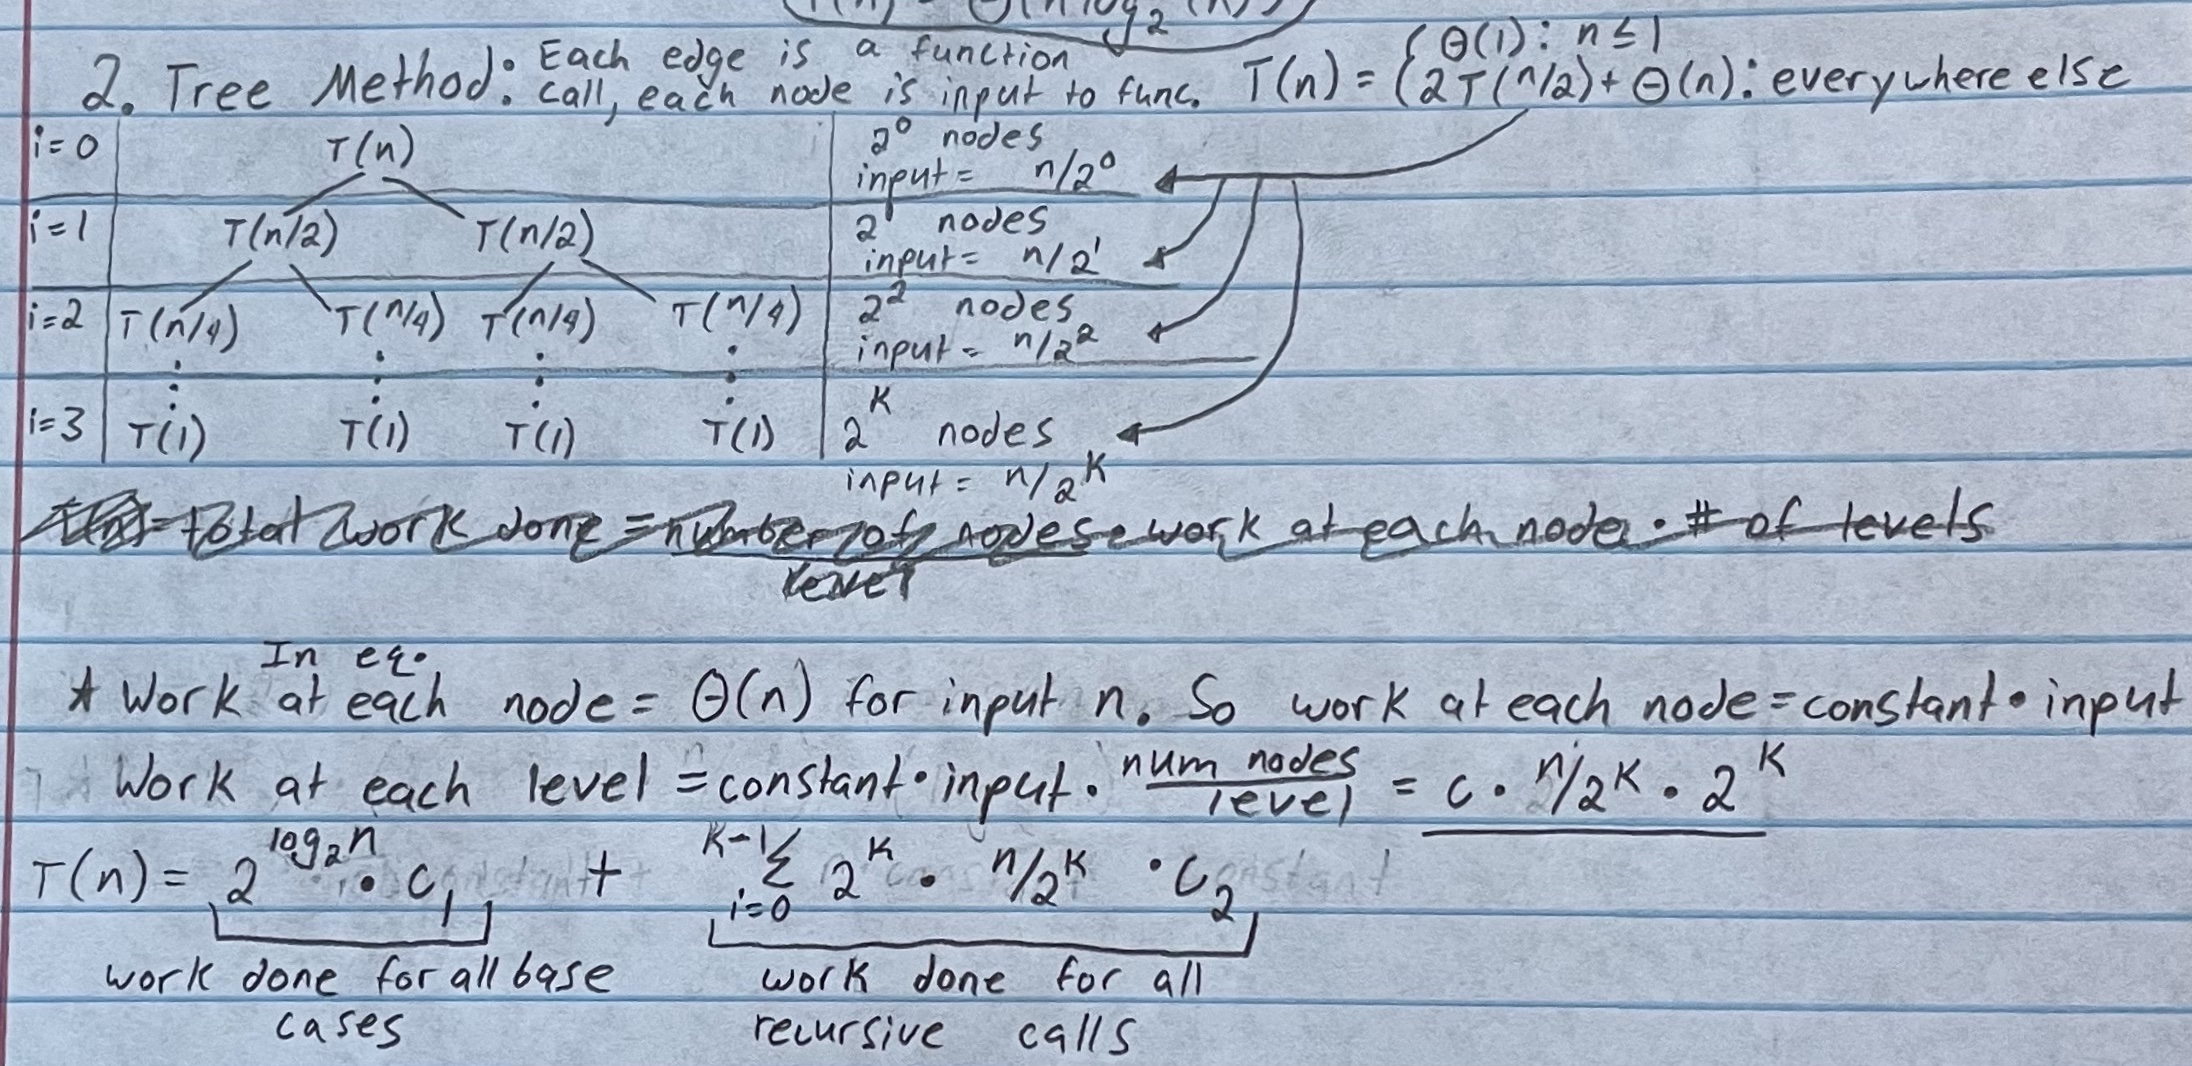 2. Tree Method: Each edge is a function call, each node is input to func. T(n) = { Θ(1): n ≤ 1
{ 2T(n/2) + Θ(n): everywhere else
i=0 T(n) 2^0 nodes
input = n/2^0
i=1 T(n/2) T(n/2) 2^1 nodes
input = n/2^1
i=2 T(n/4) T(n/4) T(n/4) T(n/4) 2^2 nodes
input = n/2^2
i=3 T(1) T(1) T(1) T(1) 2^K nodes
input = n/2^K
= total work done = number of nodes · work at each node · # of levels
level
In eq.
* Work at each node = Θ(n) for input n. So work at each node = constant · input
* Work at each level = constant · input · num nodes / level = c · n/2^K · 2^K
T(n) = 2^log₂n · c₁ + K-1 Σ i=0 2^K · n/2^K · c₂
work done for all base cases
work done for all recursive calls